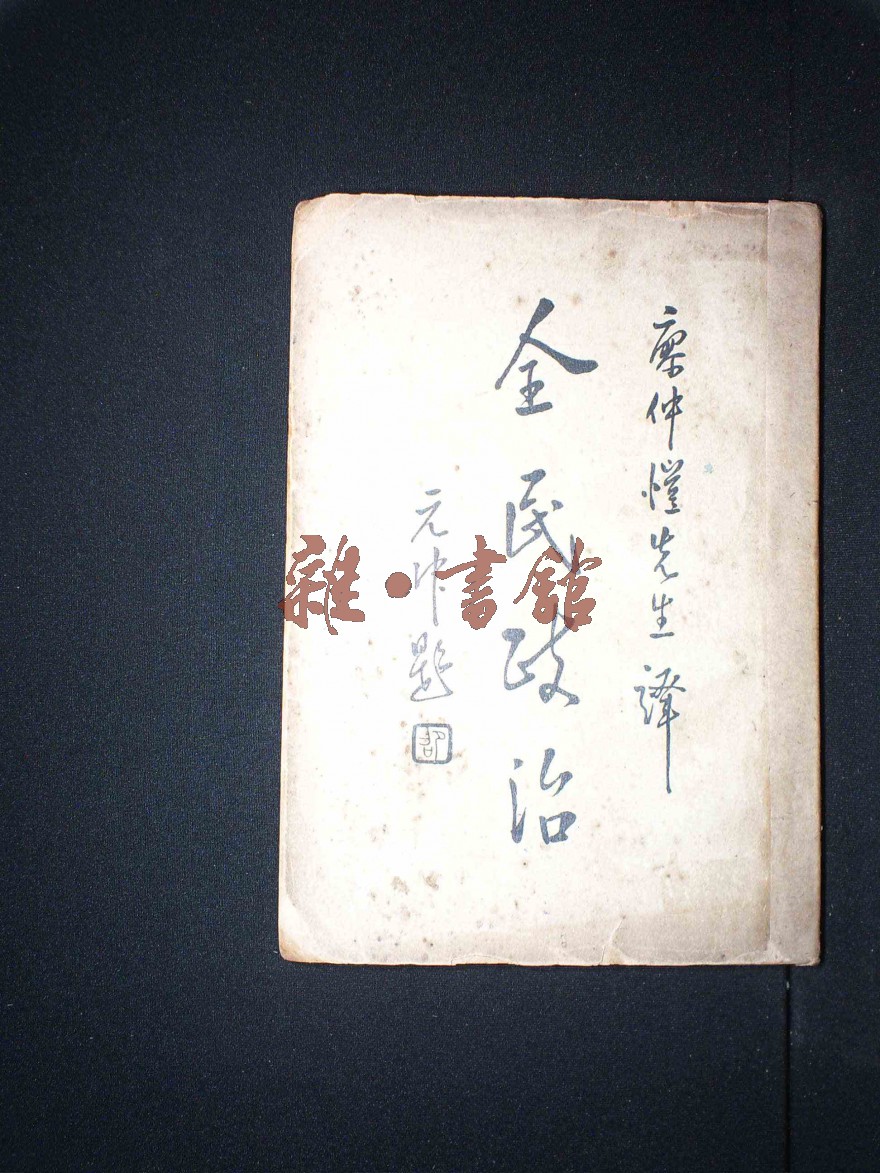 廖仲愷先生譯
全民政治
元冲題
邵
雜·書館